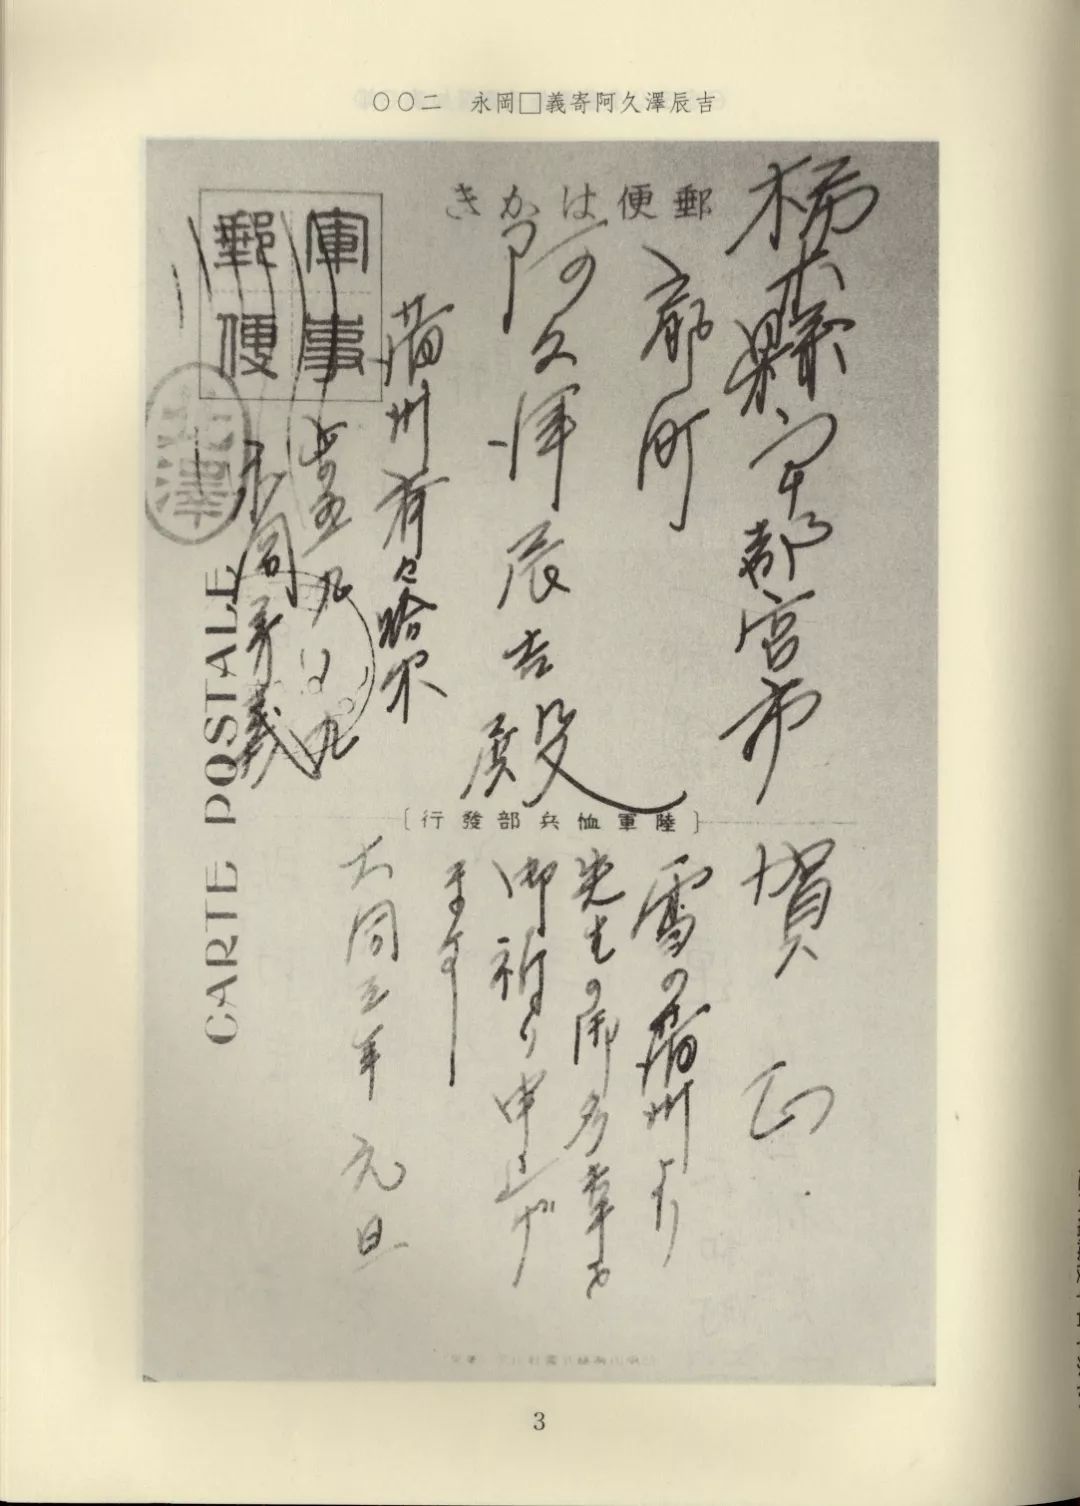 〇〇二　永岡□義寄阿久澤辰吉
郵便はかき
軍事
郵便
栃木縣宇都宮市
町
阿久澤辰吉殿
満州齊々哈尓
永岡 義
澤
CARTE POSTALE
[陸軍恤兵部發行]
賀正
雪の満州より
先生の御多幸を
御祈り申上げ
ます
大同三年 元旦
3